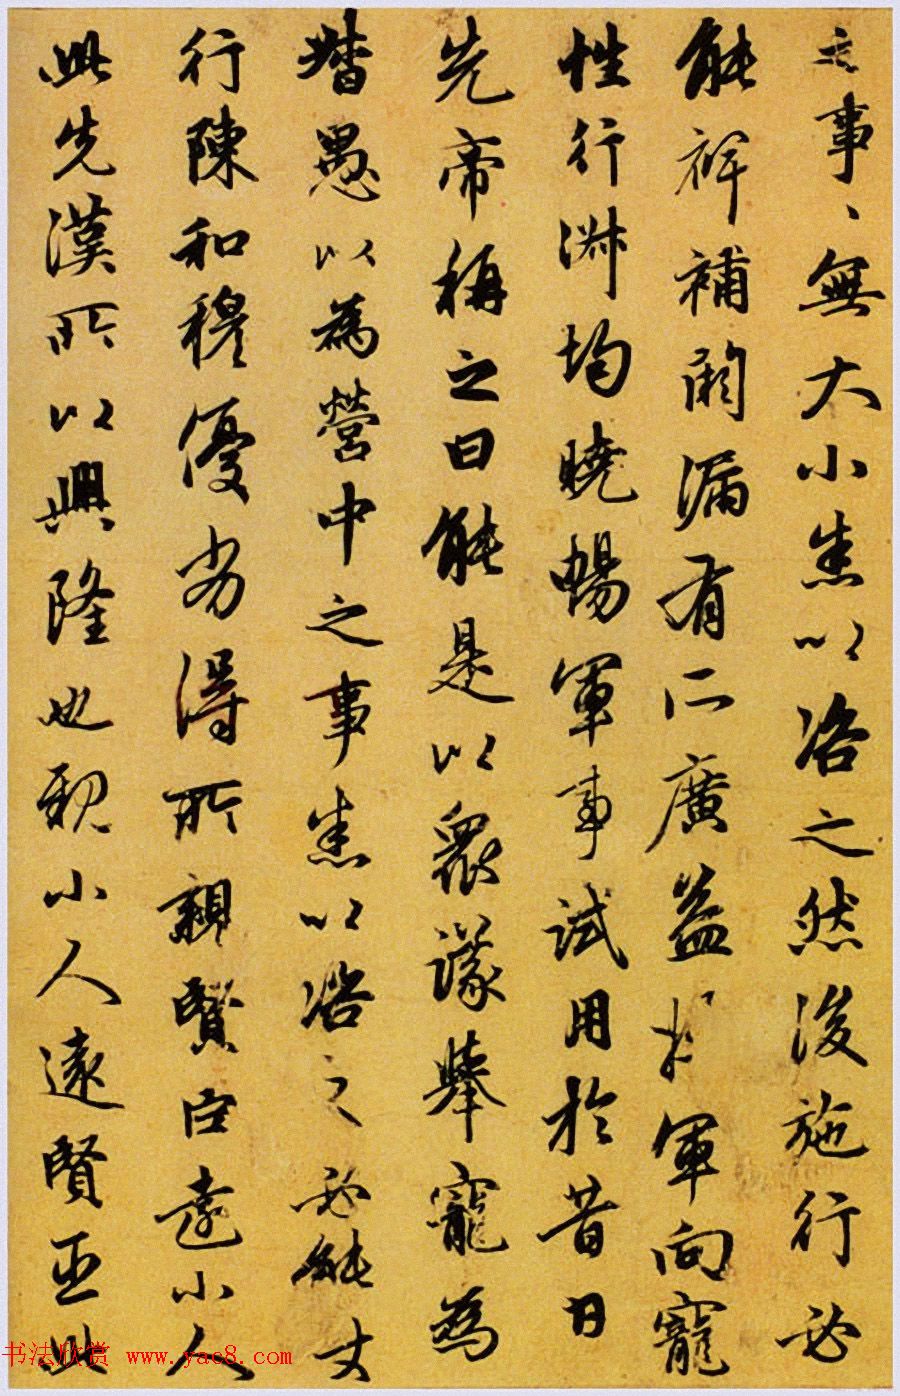 之事、無大小悉以咨之然後施行必
能裨補闕漏有仁廣益将軍向寵
性行淑均曉暢軍事試用於昔日
先帝稱之曰能是以衆議舉寵為
督愚以為營中之事悉以咨之必能
行陳和穆優劣得所親賢臣遠小人
此先漢所以興隆也親小人遠賢臣此
书法欣赏 www.yac8.com